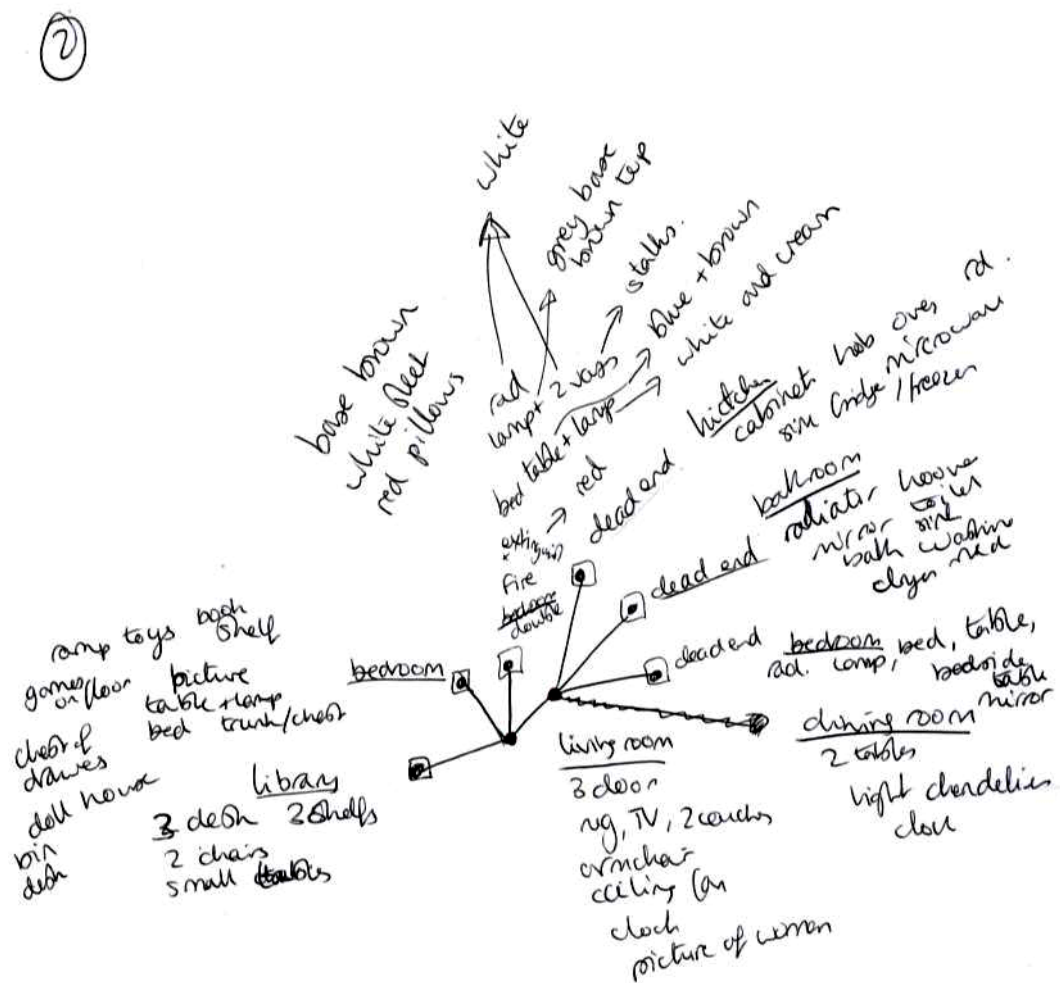 2
white
grey base
brown top
stalks.
blue + brown
white and cream
base brown
white sheet
red pillows
rad
lamp + 2 vases
bed table + lamp
red
extinguish
Fire
bedroom
double
dead end.
kitchen
cabinet hob oven rd.
sink fridge microwave
/freezer
dead end
bathroom
radiator hoover
mirror toilet
sink
bath washing
dryer
dead end
bedroom
rad. lamp, bed, table,
bedside
table
mirror
dining room
2 tables
light chandelier
clock
living room
3 door
rug, TV, 2 couches
armchair
ceiling fan
clock
picture of woman
bedroom
lamp toys book
shelf
games
on floor
picture
table + lamp
bed trunk/chest
chest of
drawes
doll house
bin
desk
library
3 desk 3 shelfs
2 chairs
small tables